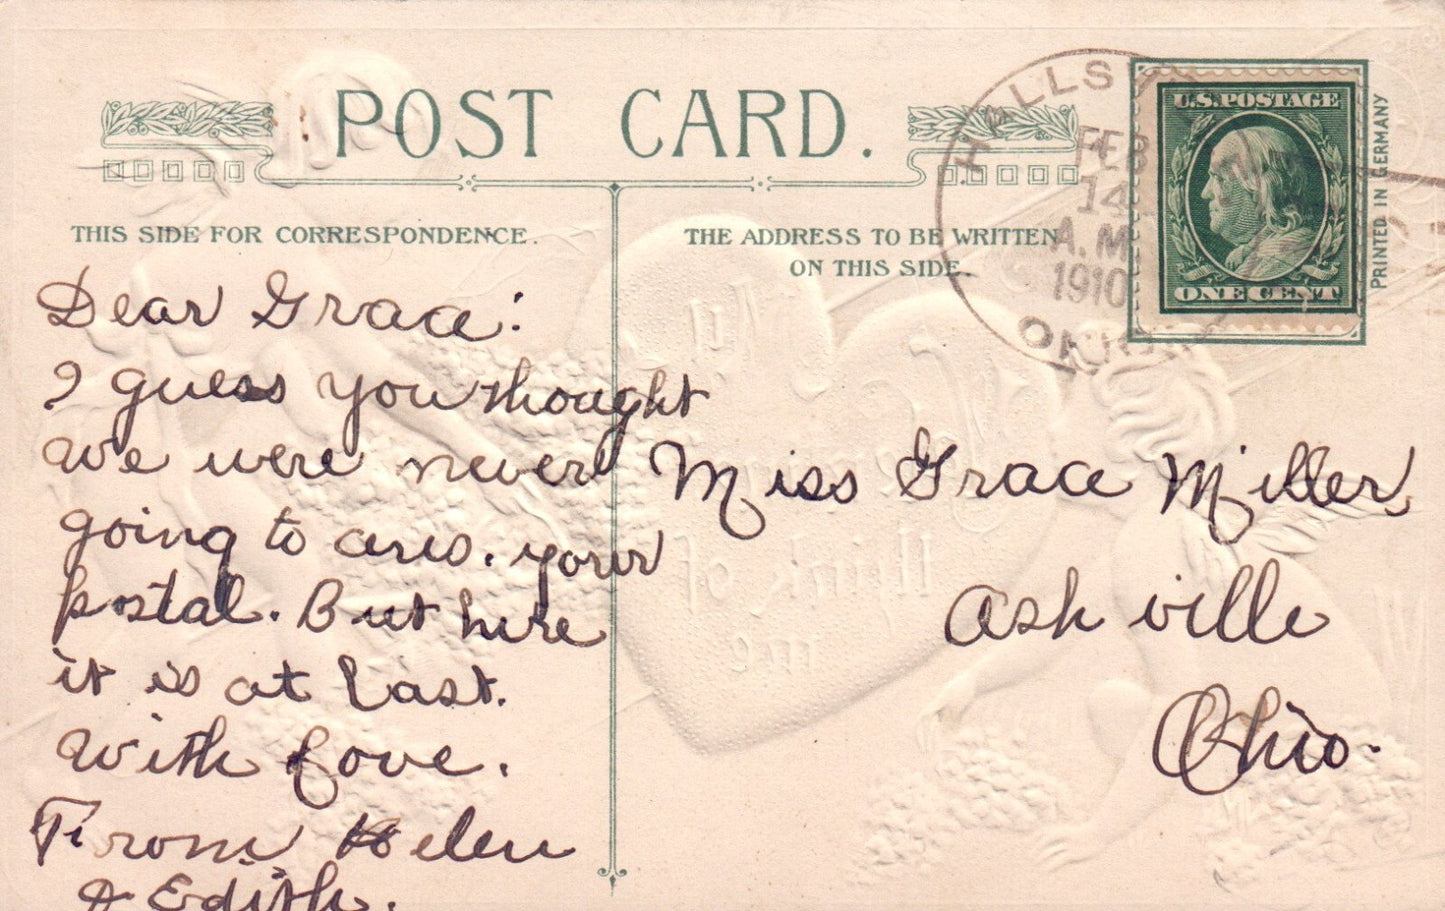 POST CARD.
THIS SIDE FOR CORRESPONDENCE.
THE ADDRESS TO BE WRITTEN
ON THIS SIDE.
PRINTED IN GERMANY
U.S. POSTAGE
ONE CENT
HALLSV
FEB
14
A.M.
1910
OHIO
Dear Grace:
I guess you thought
we were never
going to ans. your
postal. But here
it is at last.
With Love.
From Helen
& Edith.
Miss Grace Miller,
Ashville
Ohio.
think of
me